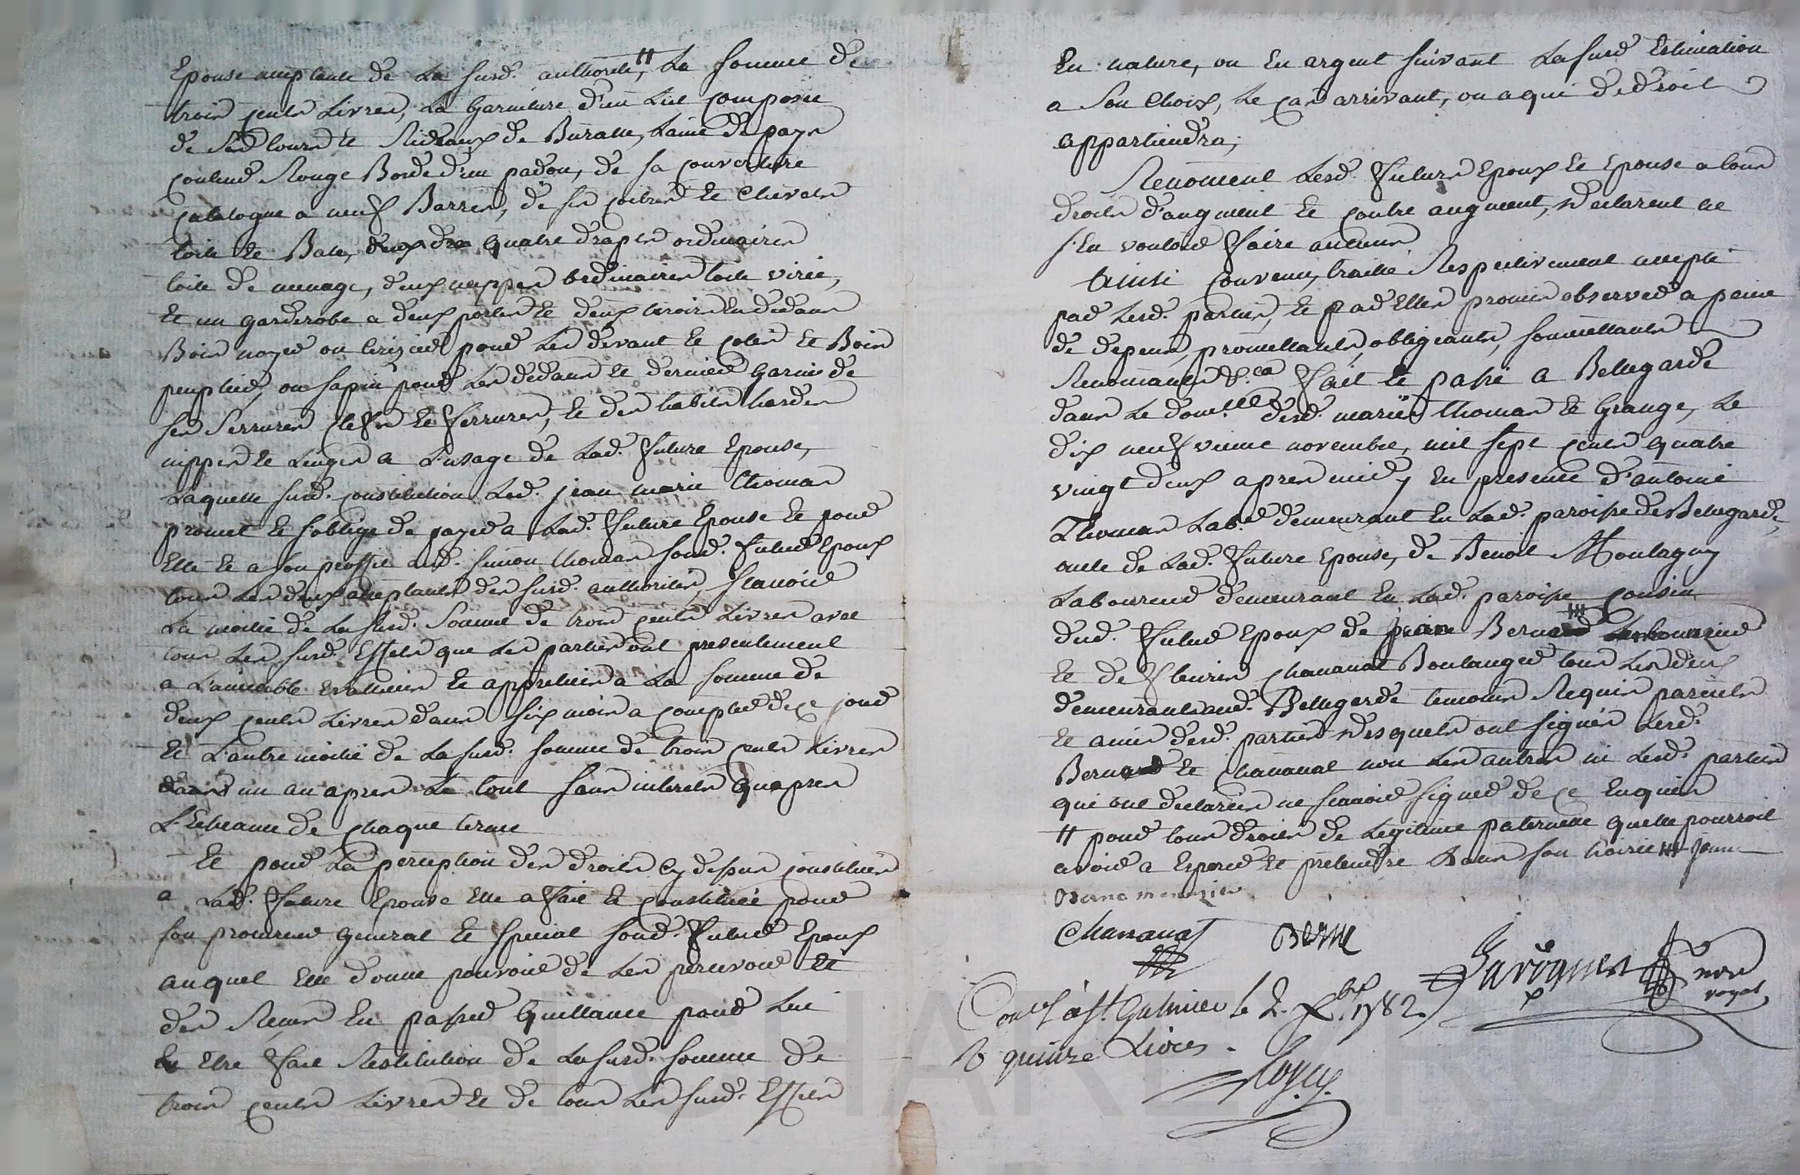 Epouse acceptante de La susd. authorité, ⧺ La somme de
trois cents Livres, La Garniture d'un Lit composée
de ses tours et Rideaux de Buratte, Laine de pays
couleur Rouge Bordé d'un padou, de sa couverture
Catalogne a neuf Barres, de ses coitres et Chevets
toile et Bale, quatre draps ordinaires
toile de menage, deux nappes ordinaires toile virée,
Et un garderobe a deux portes et deux tiroirs En dedans
Bois noyer ou cerizier pour Les devant et cotés Et Bois
peuplier ou sapin pour Les dedans et dernier Garnis de
ses Serrures clefs et ferrures, et des habits hardes
nippes et Linges a L'usage de Lad. future Epouse,
Laquelle susd. constitution Led. jean marie thomas
promet et s'oblige de payer a Lad. future Epouse et pour
Elle et a son proffit aud. simon thomas sond. futur Epoux
tous Les deux acceptants des susd. authorités, scavoir
La moitié de La susd. Somme de trois cents Livres avec
tous Les susd. Effets que Les parties ont presentement
a L'aimiable evalués et appretiés a La somme de
deux cents Livres dans six mois a compter de ce jour
Et L'autre moitié de La susd. somme de trois cents Livres
dans un an apres Le tout sans interets qu'apres
L'Echeance de chaque terme
Et pour La perception des droits cy dessus constitués
a Lad. future Epouse Elle a fait et constitué pour
son procureur general Et special sond. futur Epoux
auquel Elle donne pouvoir de Les percevoir Et
des Recus En passer quittance pour Lui
En Etre fait Restitution de La susd. somme de
trois cents Livres et de tous Les susd. Effets
En nature, ou En argent suivant La susd. Estimation
a Son Choix, Le cas arrivant, ou a qui de droit
appartiendra;
Renoncent Lesd. futurs Epoux et Epouse a tous
droits d'augment Et contre augment, declarent ne
s'En vouloir faire aucuns
Ainsi convenu, traité Respectivement accepté
par Lesd. parties, Et par Elles promis observer a peine
de depens, promettants, obligeants, soumettants
Renonçants &.ca fait et passé a Bellegarde
dans Le dom.lle desd. mariés thomas et Grange, Le
dix neufvieme novembre, mil sept cents quatre
vingt deux apres midy, En presence d'antoine
Thomas Lab.r demeurant En Lad. paroisse de Bellegarde,
oncle de Lad. future Epouse, de Benoit Montagny
Laboureur demeurant En Lad. paroisse cousin
dud. futur Epoux de Berne
Et de fleuries chavanat Boulanger tous Les deux
demeurants aud. Bellegarde temoins Requis parents
Et amis desd. parties desquels ont signés Lesd.
Berne Et chavanat non Les autres ni Lesd. parties
qui ont declarés ne scavoir signer de ce Enquis
⧺ pour tous droits de Legitime paternelle quelle pourroit
avoir a Esperer Et pretendre Dans son hoirie jean
Chavanat Berne
Javogues no.re
royal
Con.lé à S.t Galmier le 2. X.bre 1782.
R quinze Livres.